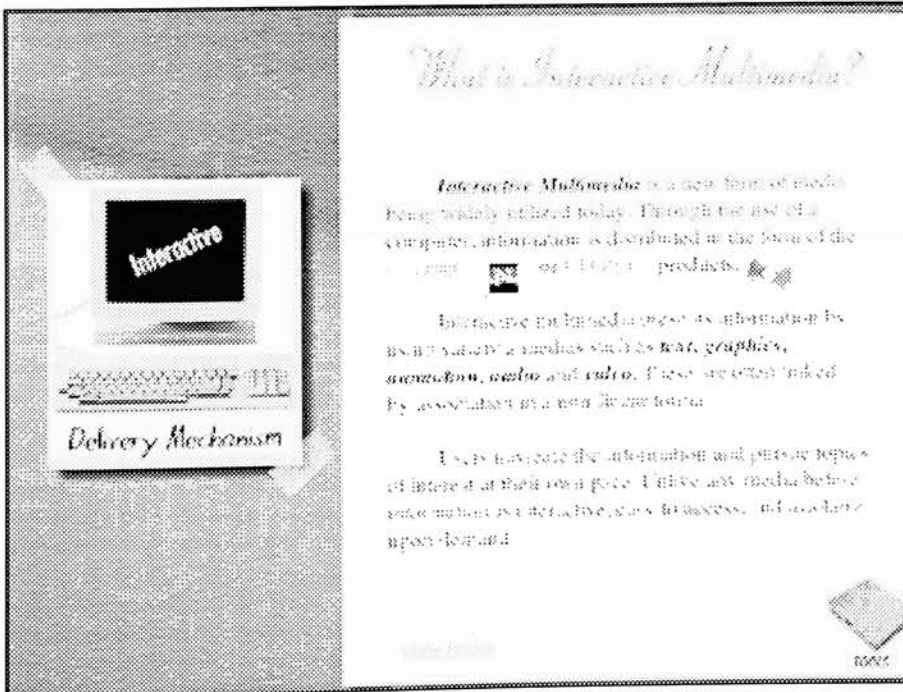 What is Interactive Multimedia?
Interactive Multimedia is a new form of media
being widely utilized today. Through the use of a
computer, information is distributed in the form of the
or products.
Interactive
Interactive multimedia presents information by
using variety a medias such as text, graphics,
animation, audio and video. These are often linked
by association in a non linear format
Delivery Mechanism
Users navigate the information and pursue topics
of interest at their own pace. Unlike any media before
information is interactive, easy to access, and available
upon demand
TOOLS